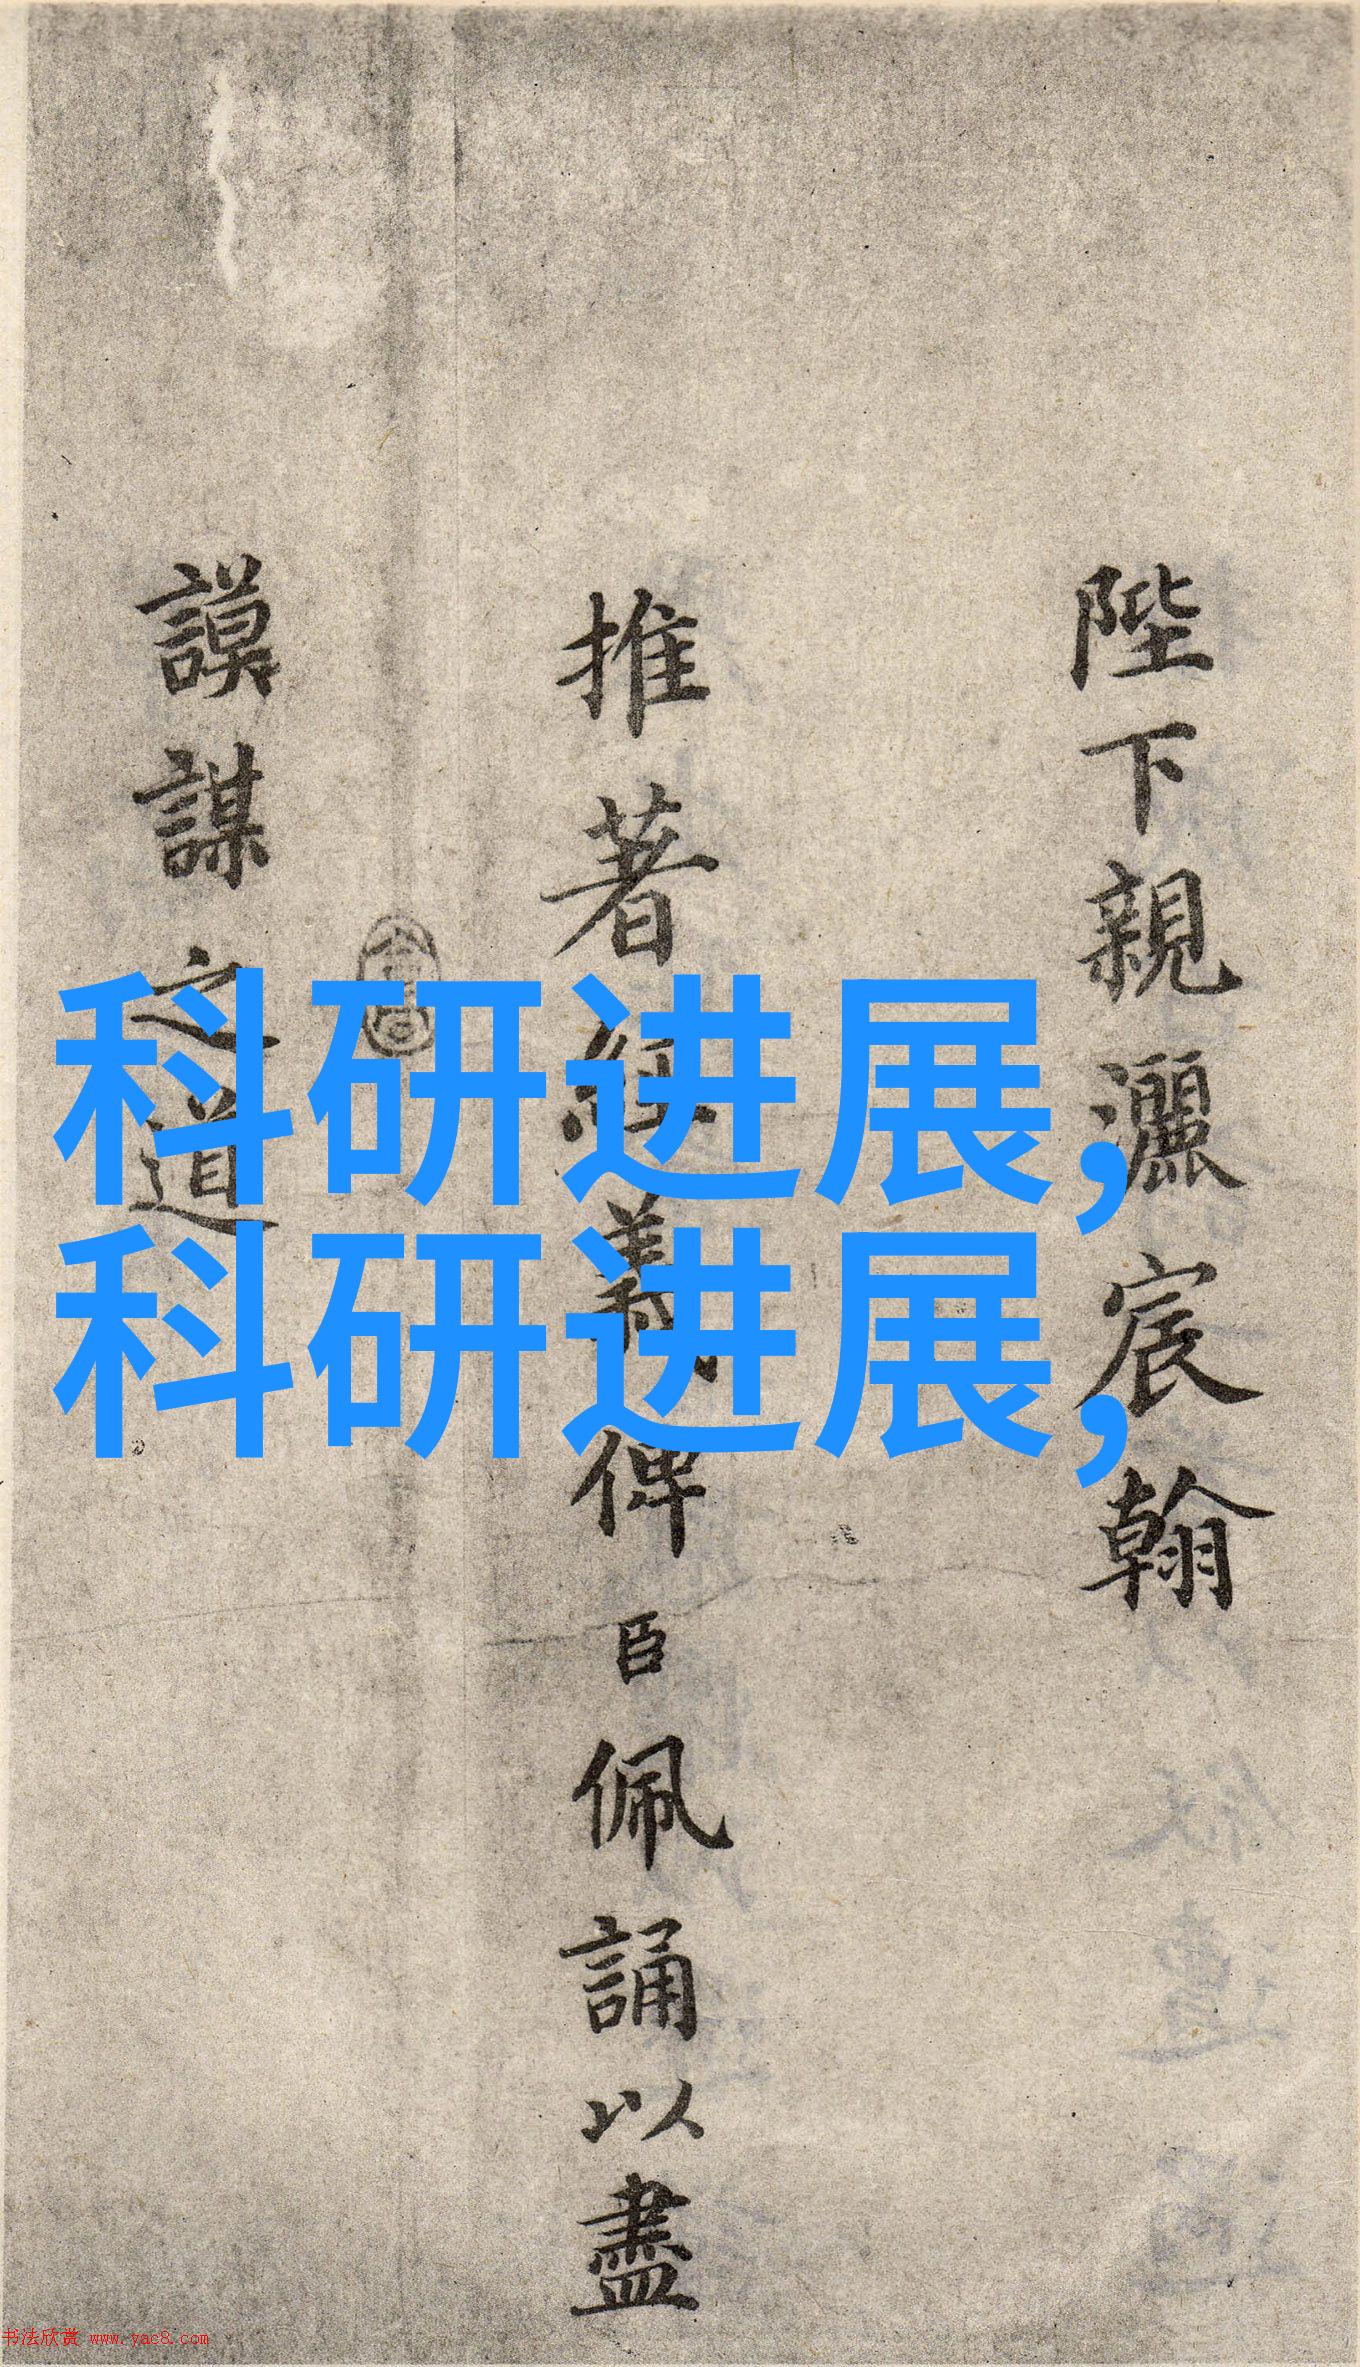 陛下親灑宸翰
推著經義俾臣佩誦以盡
謨謀之道
科研进展,
科研进展,
书法欣赏 www.yac8.com